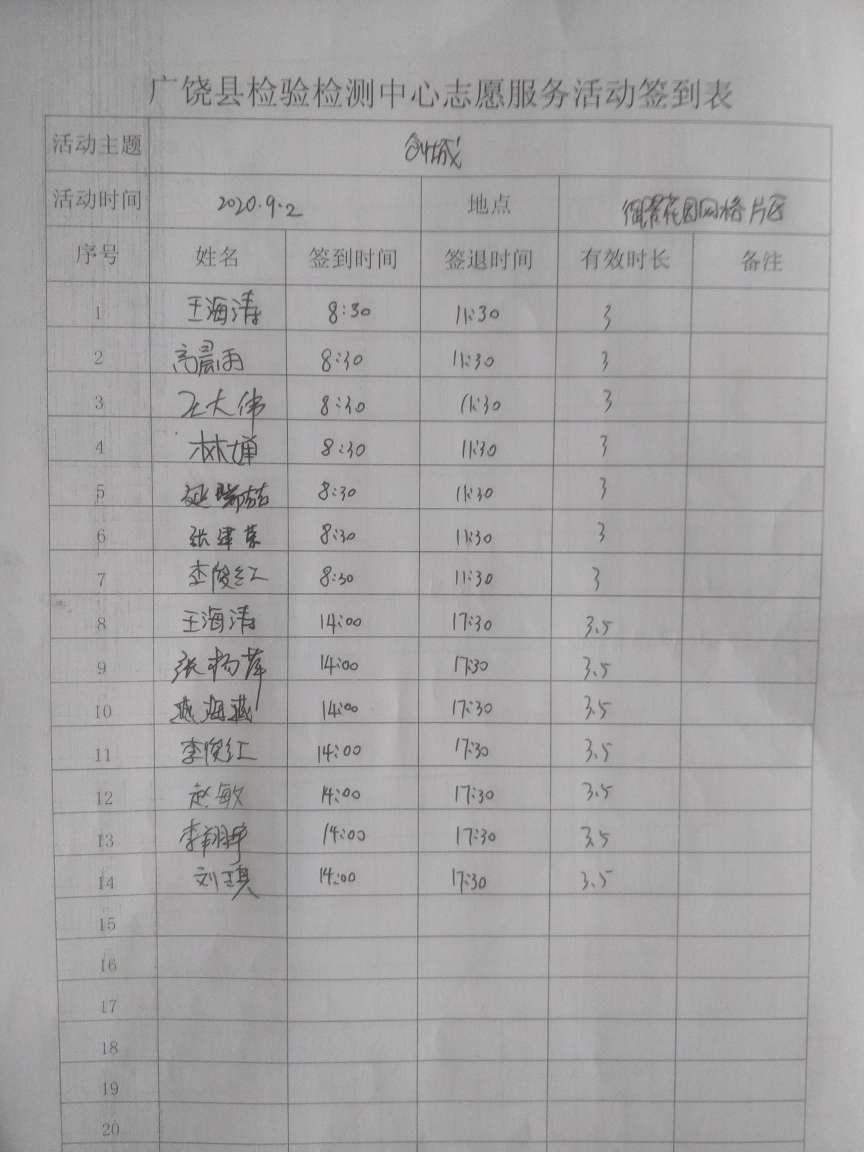 广饶县检验检测中心志愿服务活动签到表
活动主题 创城
活动时间 2020.9.2 地点 御景花园网格片区
序号 姓名 签到时间 签退时间 有效时长 备注
1 王海涛 8:30 11:30 3
2 高晨雨 8:30 11:30 3
3 王大伟 8:30 11:30 3
4 林婵 8:30 11:30 3
5 8:30 11:30 3
6 张建荣 8:30 11:30 3
7 李俊红 8:30 11:30 3
8 王海涛 14:00 17:30 3.5
9 张杨萍 14:00 17:30 3.5
10 燕海燕 14:00 17:30 3.5
11 李俊红 14:00 17:30 3.5
12 赵敏 14:00 17:30 3.5
13 14:00 17:30 3.5
14 刘琪 14:00 17:30 3.5
15
16
17
18
19
20